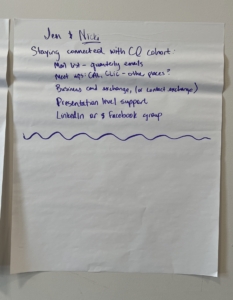 Jen & Nick
Staying connected with CQ cohort
Mail list - quarterly emails
Meet up: CAL, CLIC - other places?
Business card exchange, (or contact exchange)
Presentation level support
LinkedIn or Facebook group